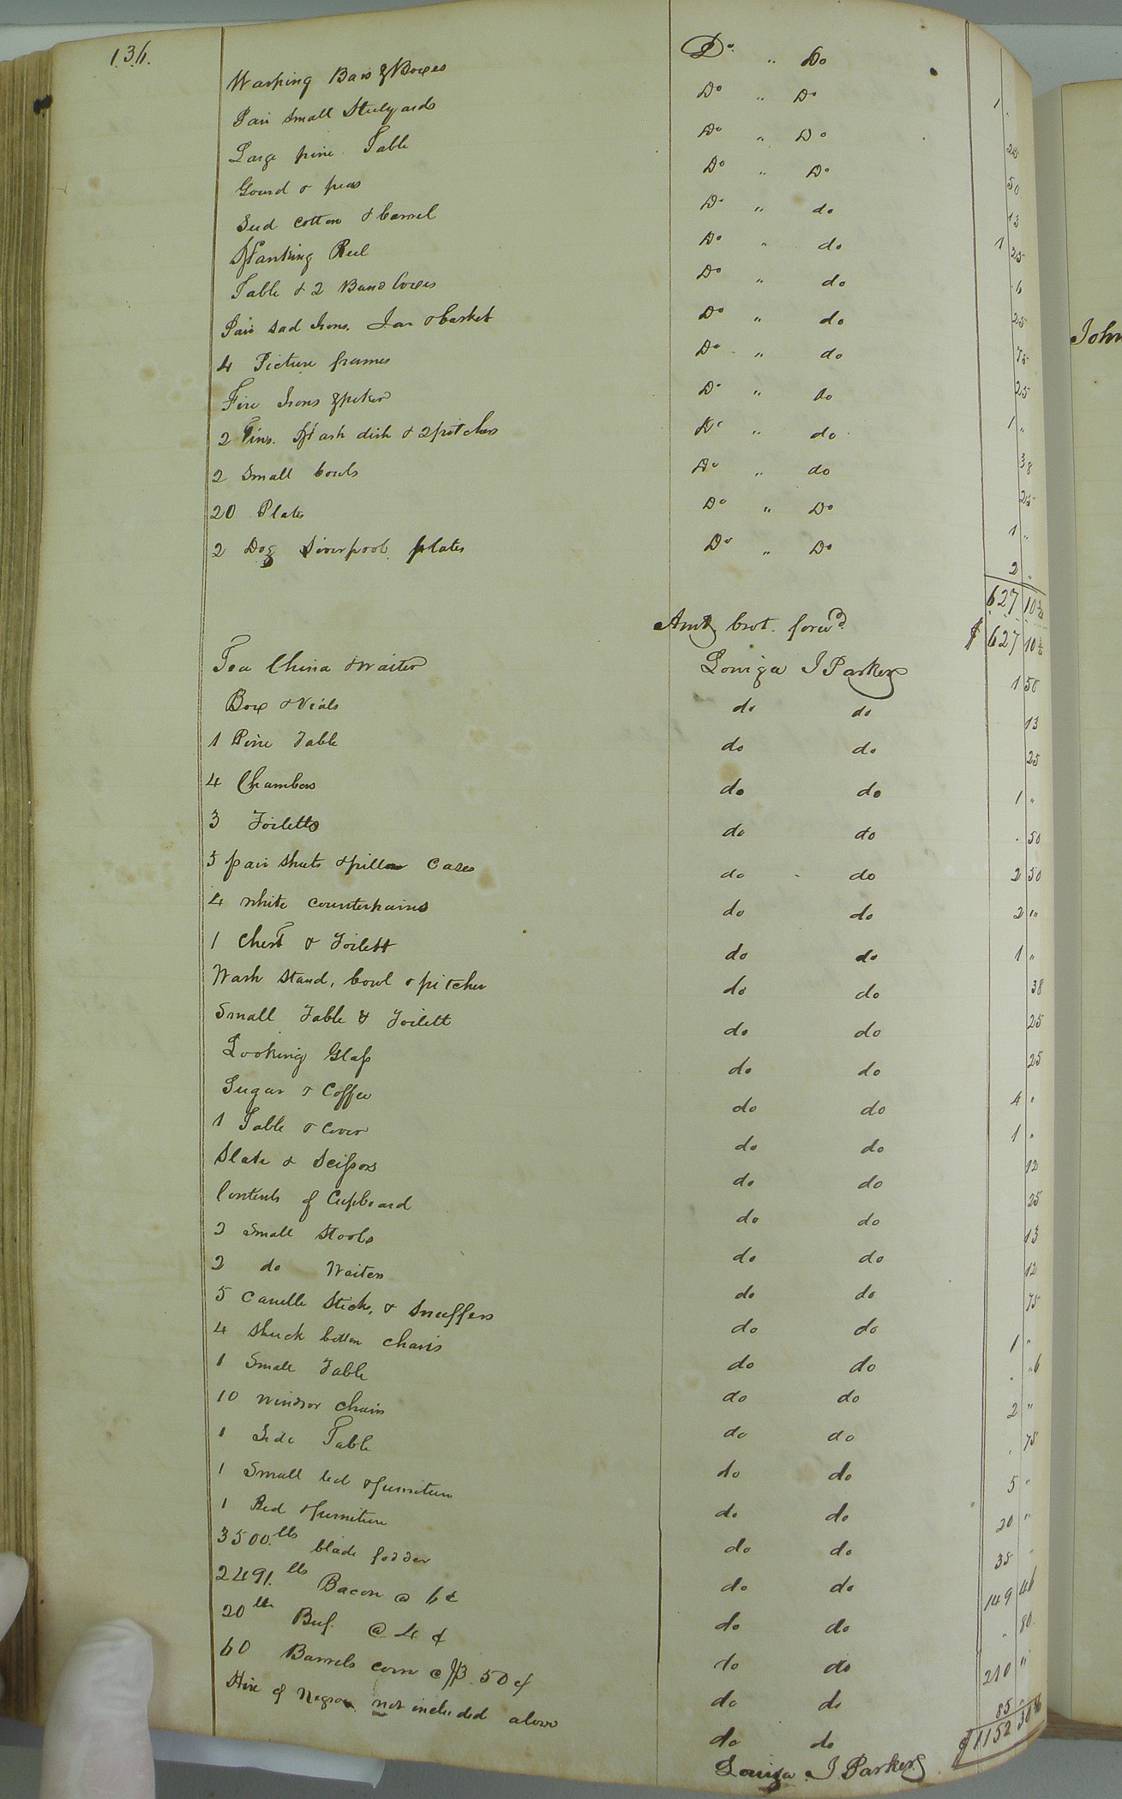 136.
Do " Do
Washing Bars & Boxes Do " Do 1 .
Pair Small Steelyards Do " Do 25
Large pine Table Do " Do 50
Gourd & peas Do " Do 13
Seed cotton & barrel Do " do 1 25
Reel Do " do 6
Table & 2 Band boxes Do " do 25
Pair Sad Irons, Jar & basket Do " do 75
4 Picture frames Do " do 25
Fire Irons Do " do 1 "
2 Tins. Wash dish & 2 pitchers Do " do 38
2 Small bowls Do " do 25
20 Plates Do " Do 1 "
2 Doz Liverpool plates Do " Do 2 "
627 10½
Amt brot. forwd $ 627 10½
Tea China & waiter Louiza J Parker 1 50
Box & Vials do do 13
1 Pine Table do do 25
4 Chambers do do 1 "
3 Toiletts do do . 50
5 pair sheets & pillow Cases do do 2 50
4 white counterpains do do 2 "
1 Chest & Toilett do do 1 "
Wash Stand, bowl & pitcher do do 38
Small Table & Toilett do do 25
Looking Glass do do 25
Sugar & Coffee do do 4 "
1 Table & Cover do do 1 "
Slate & Scissors do do 12
Contents of Cupboard do do 25
2 Small Stools do do 13
2 do Waiters do do 12
5 Candle Stick, & Snuffers do do 75
4 Shuck bottom chairs do do 1 "
1 Small Table do do . "6
10 windsor chairs do do 2 "
1 Side Table do do . 75
1 Small bed & furniture do do 5 "
1 Bed & furniture do do 20 "
3500. lbs blade fodder do do 35 "
2491. lbs Bacon @ 6¢ do do 149 46
20 lbs Beef. @ 4 ¢ do do . 80
60 Barrels corn @ $3.50 ¢ do do 210 "
Hire of Negroes not included above do do 85 "
Louiza J Parker $1152
John